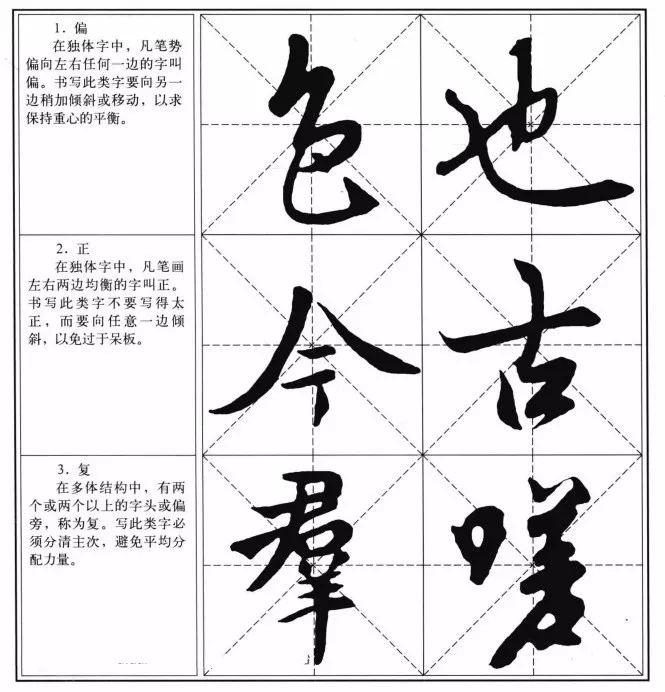 1. 偏
在独体字中，凡笔势
偏向左右任何一边的字叫
偏。书写此类字要向另一
边稍加倾斜或移动，以求
保持重心的平衡。
色 也
2. 正
在独体字中，凡笔画
左右两边均衡的字叫正。
书写此类字不要写得太
正，而要向任意一边倾
斜，以免过于呆板。
今 古
3. 复
在多体结构中，有两
个或两个以上的字头或偏
旁，称为复。写此类字必
须分清主次，避免平均分
配力量。
羣 嗟